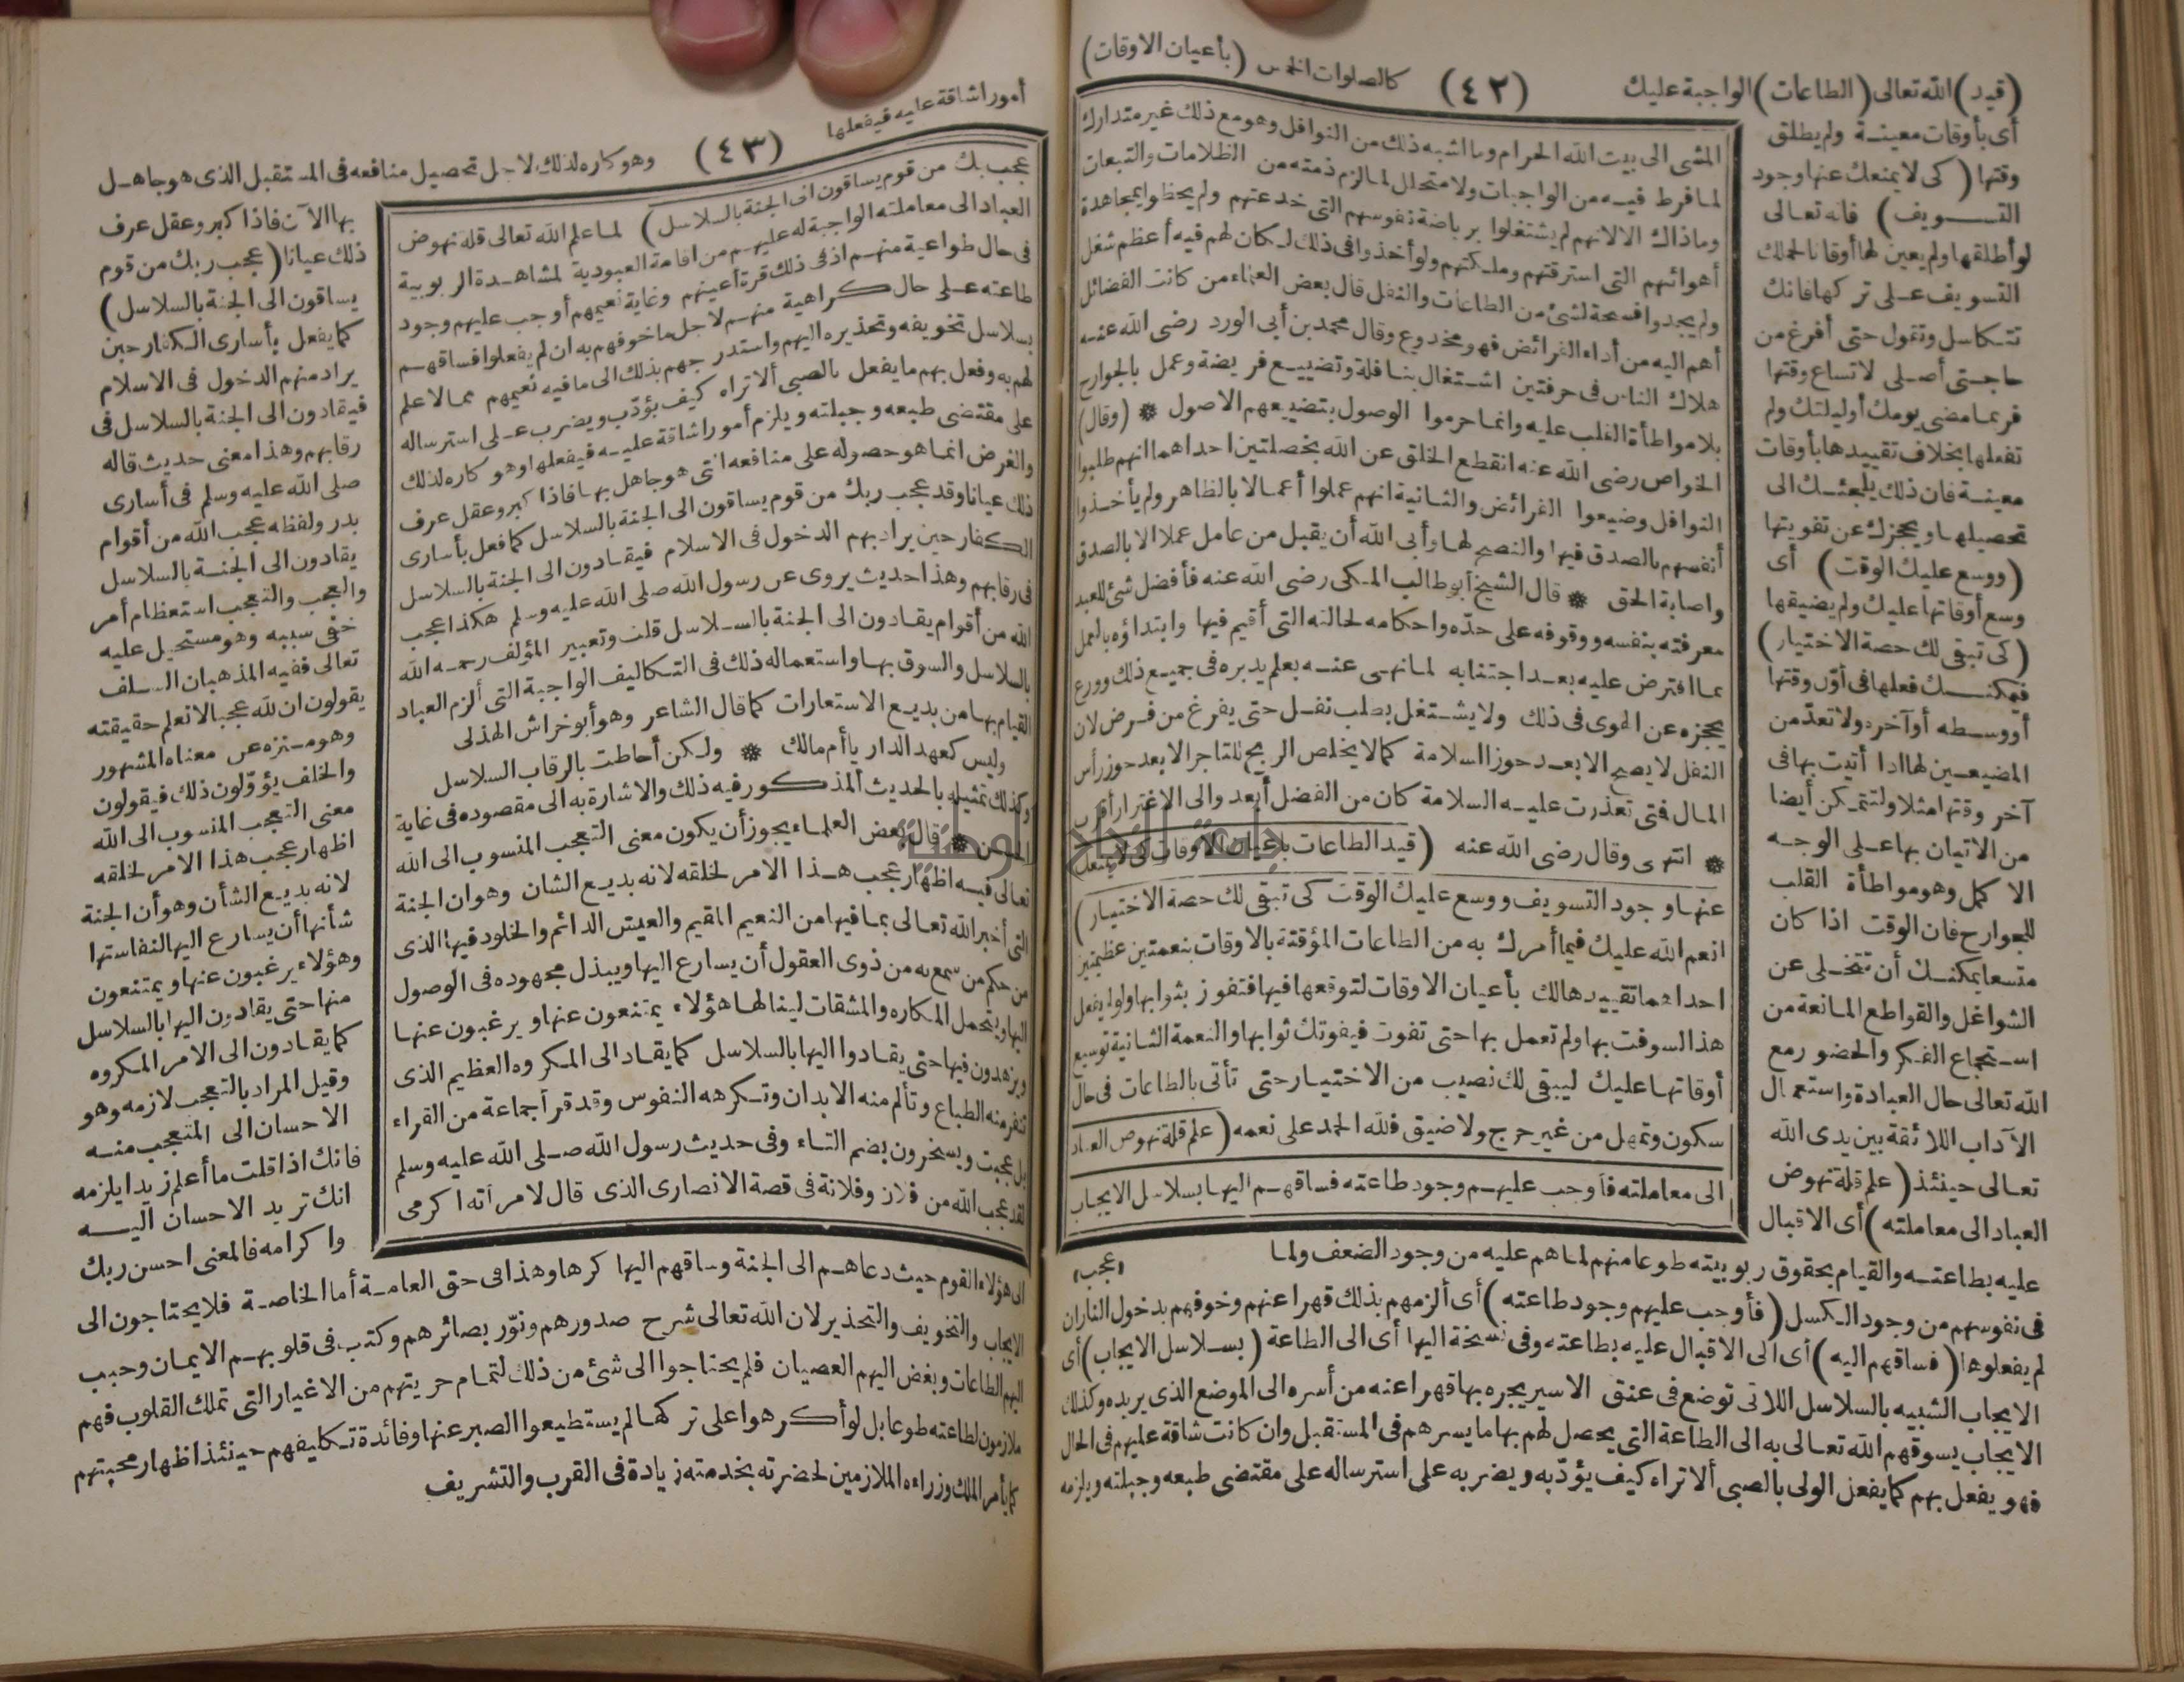 (قيد) الله تعالى (الطاعات) الواجبة عليك (٤٢) كالصلوات الخمس (بأعيان الاوقات)
أى بأوقات معينة ولم يطلق
وقتها (كى لا يمنعك عنها وجود
التسويف) فانه تعالى
لو أطلقها ولم يعين لها أوقاتا لحملك
التسويف على تركها فانك
تتكاسل وتقول حتى أفرغ من
حاجتى أصلى لاتساع وقتها
فربما مضى يومك أو ليلتك ولم
تفعلها بخلاف تقييدها بأوقات
معينة فان ذلك يلجئك الى
تحصيلها ويحجزك عن تفويتها
(ووسع عليك الوقت) أى
وسع أوقاتها عليك ولم يضيقها
(كى تبقى لك حصة الاختيار)
فيمكنك فعلها فى أول وقتها
أو وسطه أو آخره ولا تعد من
المضيعين لها اذا أتيت بها فى
آخر وقتها مثلا ولتتمكن أيضا
من الاتيان بها على الوجه
الاكمل وهو مواطأة القلب
للجوارح فان الوقت اذا كان
متسعا يمكنك أن تتخلى عن
الشواغل والقواطع المانعة من
استجماع الفكر والحضور مع
الله تعالى حال العبادة واستعمال
الآداب اللائقة بين يدى الله
تعالى حينئذ (علم قلة نهوض
العباد الى معاملته) أى الاقبال
عليه بطاعته والقيام بحقوق ربوبيته طوعا منهم لما هم عليه من وجود الضعف ولما
فى نفوسهم من وجود الكسل (فأوجب عليهم وجود طاعته) أى ألزمهم بذلك قهرا عنهم وخوفهم بدخول النار ان
لم يفعلوها (فساقهم اليه) أى الى الاقبال عليه بطاعته وفى نسخة اليها أى الى الطاعة (بسلاسل الايجاب) أى
الايجاب الشبيه بالسلاسل اللاتى توضع فى عنق الاسير يجره بها قهرا عنه من أسره الى الموضع الذى يريده وكذلك
الايجاب يسوقهم الله تعالى به الى الطاعة التى يحصل لهم بها ما يسرهم فى المستقبل وان كانت شاقة عليهم فى الحال
فهو يفعل بهم كما يفعل الولى بالصبى ألا تراه كيف يؤدبه ويضربه على استرساله على مقتضى طبعه وجبلته ويلزمه
المشى الى بيت الله الحرام وما اشبه ذلك من النوافل وهو مع ذلك غير متدارك
لما فرط فيه من الواجبات ولا متحلل لما لزم ذمته من الظلامات والتبعات
وما ذاك الا لانهم لم يشتغلوا برياضة نفوسهم التى خدعتهم ولم يحظوا بمجاهدة
أهوائهم التى استرقتهم وملكتهم ولو أخذوا فى ذلك لكان لهم فيه أعظم شغل
ولم يجدوا فسحة لشئ من الطاعات والنفل قال بعض العلماء من كانت الفضائل
أهم اليه من أداء الفرائض فهو مخدوع وقال محمد بن أبى الورد رضى الله عنه
هلاك الناس فى حرفتين اشتغال بنافلة وتضييع فريضة وعمل بالجوارح
بلا مواطأة القلب عليه وانما حرموا الوصول بتضييعهم الاصول * (وقال)
الخواص رضى الله عنه انقطع الخلق عن الله بخصلتين احداهما انهم طلبوا
النوافل وضيعوا الفرائض والثانية انهم عملوا أعمالا بالظاهر ولم يأخذوا
أنفسهم بالصدق فيها والنصح لها وأبى الله أن يقبل من عامل عملا الا بالصدق
واصابة الحق * قال الشيخ أبو طالب المكى رضى الله عنه فأفضل شئ للعبد
معرفته بنفسه ووقوفه على حده واحكامه لحالته التى أقيم فيها وابتداؤه بالعمل
بما افترض عليه بعد اجتنابه لما نهى عنه بعلم يدبره فى جميع ذلك وورع
يحجزه عن الهوى فى ذلك ولا يشتغل بطلب نفل حتى يفرغ من فرض لان
النفل لا يصح الا بعد حوز السلامة كما لا يخلص الربح للتاجر الا بعد حوز رأس
المال فمتى تعذرت عليه السلامة كان من الفضل أبعد والى الاغترار أقرب
* انتهى وقال رضى الله عنه (قيد الطاعات بأعيان الاوقات كى لا يمنعك
عنها وجود التسويف ووسع عليك الوقت كى تبقى لك حصة الاختيار)
انعم الله عليك فيما أمرك به من الطاعات المؤقتة بالاوقات بنعمتين عظيمتين
احداهما تقييدها لك بأعيان الاوقات لتوقعها فيها فتفوز بثوابها ولو لم يفعل
هذا لسوفت بها ولم تعمل بها حتى تفوت فيفوتك ثوابها والنعمة الثانية توسيع
أوقاتها عليك ليبقى لك نصيب من الاختيار حتى تأتى بالطاعات فى حال
سكون وتمهل من غير حرج ولا ضيق فلله الحمد على نعمه (علم قلة نهوض العباد
الى معاملته فأوجب عليهم وجود طاعته فساقهم اليها بسلاسل الايجاب
(عجب)
أمورا شاقة عليه فيفعلها (٤٣) وهو كاره لذلك لاجل تحصيل منافعه فى المستقبل الذى هو جاهل
عجب ربك من قوم يساقون الى الجنة بالسلاسل) لما علم الله تعالى قلة نهوض
العباد الى معاملته الواجبة له عليهم من اقامة العبودية لمشاهدة الربوبية
فى حال طواعية منهم اذ فى ذلك قرة أعينهم وغاية نعيمهم أوجب عليهم وجود
طاعته على حال كراهية منهم لاجل ما خوفهم به ان لم يفعلوا فساقهم
بسلاسل تخويفه وتحذيره اليهم واستدرجهم بذلك الى ما فيه نعيمهم مما لا علم
لهم به وفعل بهم ما يفعل بالصبى ألا تراه كيف يؤدب ويضرب على استرساله
على مقتضى طبعه وجبلته ويلزم أمورا شاقة عليه فيفعلها وهو كاره لذلك
والغرض انما هو حصوله على منافعه التى هو جاهل بها فاذا كبر وعقل عرف
ذلك عيانا وقد عجب ربك من قوم يساقون الى الجنة بالسلاسل كما فعل بأسارى
الكفار حين يراد بهم الدخول فى الاسلام فيقادون الى الجنة بالسلاسل
فى رقابهم وهذا حديث يروى عن رسول الله صلى الله عليه وسلم هكذا عجب
الله من أقوام يقادون الى الجنة بالسلاسل قلت وتعبير المؤلف رحمه الله
بالسلاسل والسوق بها واستعماله ذلك فى التكاليف الواجبة التى ألزم العباد
القيام بها من بديع الاستعارات كما قال الشاعر وهو أبو خراش الهذلى
وليس كعهد الدار يا أم مالك * ولكن أحاطت بالرقاب السلاسل
وكذلك تمثيله بالحديث المذكور فيه ذلك والاشارة به الى مقصوده فى غاية
الحسن * قال بعض العلماء يجوز أن يكون معنى التعجب المنسوب الى الله
تعالى فيه اظهار عجب هذا الامر لخلقه لانه بديع الشان وهو ان الجنة
التى أخبر الله تعالى بما فيها من النعيم المقيم والعيش الدائم والخلود فيها الذى
من حكم من سمع به من ذوى العقول أن يسارع اليها ويبذل مجهوده فى الوصول
اليها ويتحمل المكاره والمشقات لينالها هؤلاء يمتنعون عنها ويرغبون عنها
ويزهدون فيها حتى يقادوا اليها بالسلاسل كما يقاد الى المكروه العظيم الذى
تنفر منه الطباع وتألم منه الابدان وتكرهه النفوس وقد قرأ جماعة من القراء
بل عجبت ويسخرون بضم التاء وفى حديث رسول الله صلى الله عليه وسلم
لقد عجب الله من فلان وفلانة فى قصة الانصارى الذى قال لامرأته اكرمى
بها الآن فاذا كبر وعقل عرف
ذلك عيانا (عجب ربك من قوم
يساقون الى الجنة بالسلاسل)
كما يفعل بأسارى الكفار حين
يراد منهم الدخول فى الاسلام
فيقادون الى الجنة بالسلاسل فى
رقابهم وهذا معنى حديث قاله
صلى الله عليه وسلم فى أسارى
بدر ولفظه عجب الله من أقوام
يقادون الى الجنة بالسلاسل
والعجب والتعجب استعظام أمر
خفى سببه وهو مستحيل عليه
تعالى ففيه المذهبان السلف
يقولون ان لله عجبا لا نعلم حقيقته
وهو منزه عن معناه المشهور
والخلف يؤولون ذلك فيقولون
معنى التعجب المنسوب الى الله
اظهار عجب هذا الامر لخلقه
لانه بديع الشأن وهو أن الجنة
شأنها أن يسارع اليها لنفاستها
وهؤلاء يرغبون عنها ويمتنعون
منها حتى يقادون اليها بالسلاسل
كما يقادون الى الامر المكروه
وقيل المراد بالتعجب لازمه وهو
الاحسان الى المتعجب منه
فانك اذا قلت ما أعلم زيدا يلزمه
انك تريد الاحسان اليه
واكرامه فالمعنى احسن ربك
الى هؤلاء القوم حيث دعاهم الى الجنة وساقهم اليها كرها وهذا فى حق العامة أما الخاصة فلا يحتاجون الى
الايجاب والتخويف والتحذير لان الله تعالى شرح صدورهم ونور بصائرهم وكتب فى قلوبهم الايمان وحبب
اليهم الطاعات وبغض اليهم العصيان فلم يحتاجوا الى شئ من ذلك لتمام حريتهم من الاغيار التى تملك القلوب فهم
ملازمون لطاعته طوعا بل لو أكرهوا على تركها لم يستطيعوا الصبر عنها وفائدة تكليفهم حينئذ اظهار محبتهم
كما يأمر الملك وزراءه الملازمين لحضرته بخدمته زيادة فى القرب والتشريف
جامعة النجاح الوطنية